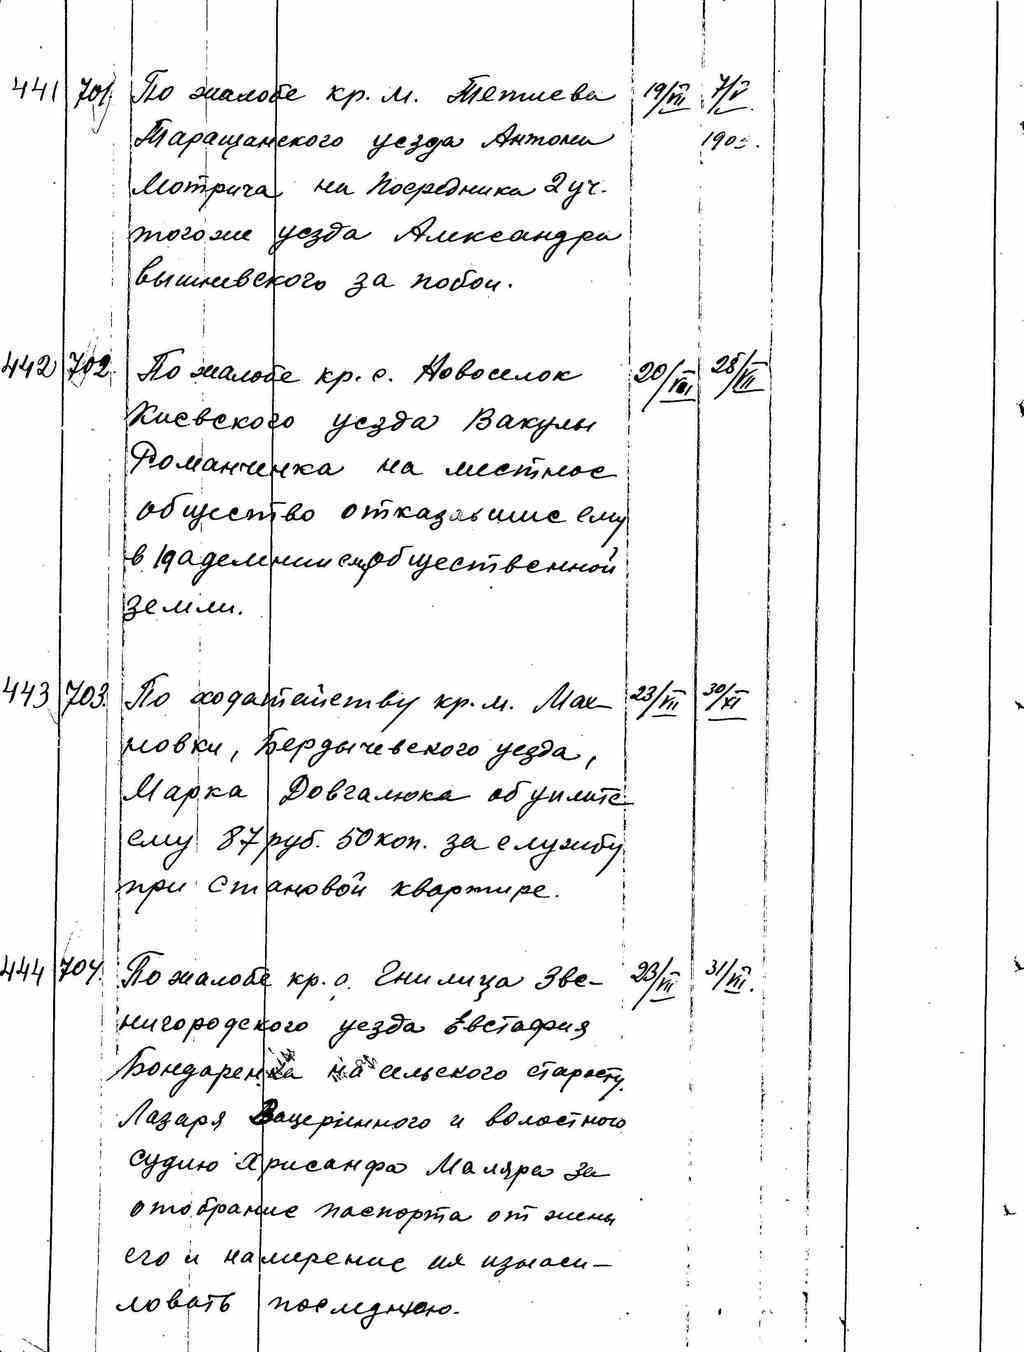 441 701. По жалобе кр. м. Тетиева 19/VII 7/V
Таращанского уезда Антона 190
Мотрича на Посредника 2 уч.
тогоже уезда Александра
Вышневского за побои.
442 702. По жалобе кр. с. Новоселок 20/VIII 28/VII
Киевского уезда Вакулы
Романченка на местное
общество отказавшие ему
в наделении ему общественной
земли.
443 703. По ходатайству кр. м. Мах- 23/VII 30/XI
новки, Бердычевского уезда,
Марка Довгалюка об уплате
ему 87 руб. 50 коп. за службу
при Становой квартире.
444 704. По жалобе кр. с. Гнилица Зве- 23/VII 31/VII.
нигородского уезда Евстафия
Бондаренка на сельского старосту
Лазаря и волостного
судию Хрисанфа Маляра за
отобрание паспорта от жены
его и намерение их изнаси-
ловать последнюю.